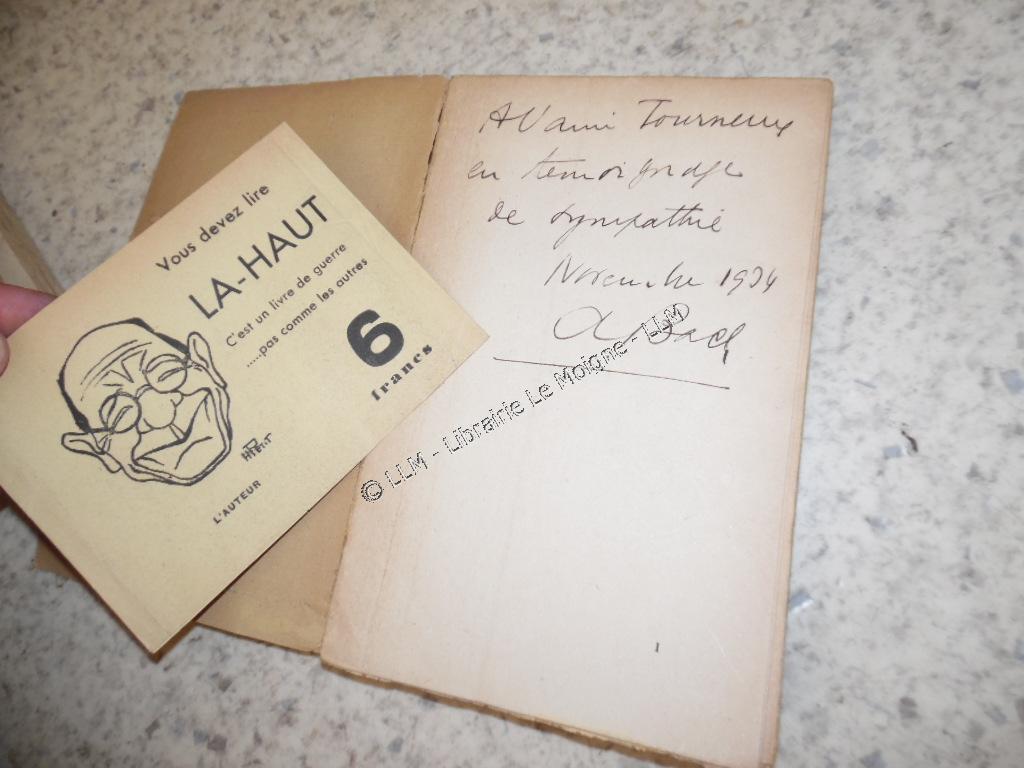 A l'ami Tourneux
en témoignage
de sympathie
Novembre 1934
Vous devez lire
LA-HAUT
C'est un livre de guerre
.....pas comme les autres
6
francs
L'AUTEUR
© LLM - Librairie Le Moigne - LLM
1